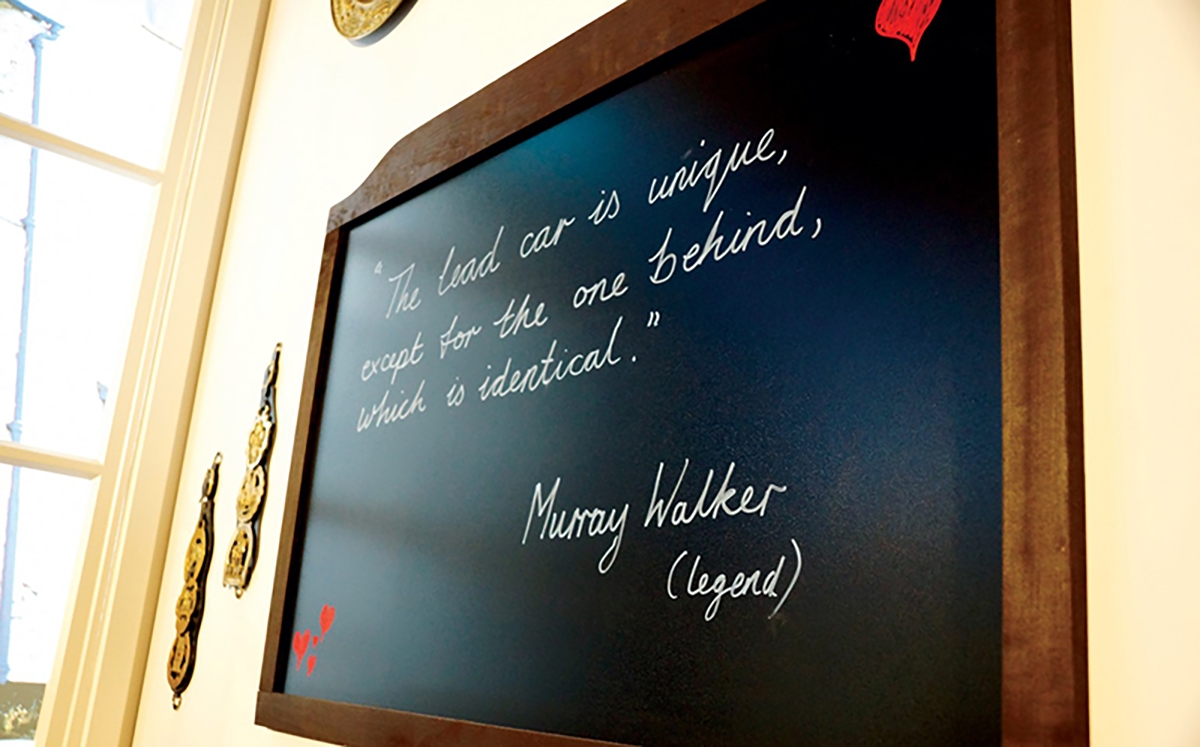 “The lead car is unique,
except for the one behind,
which is identical.”
Murray Walker
(legend)